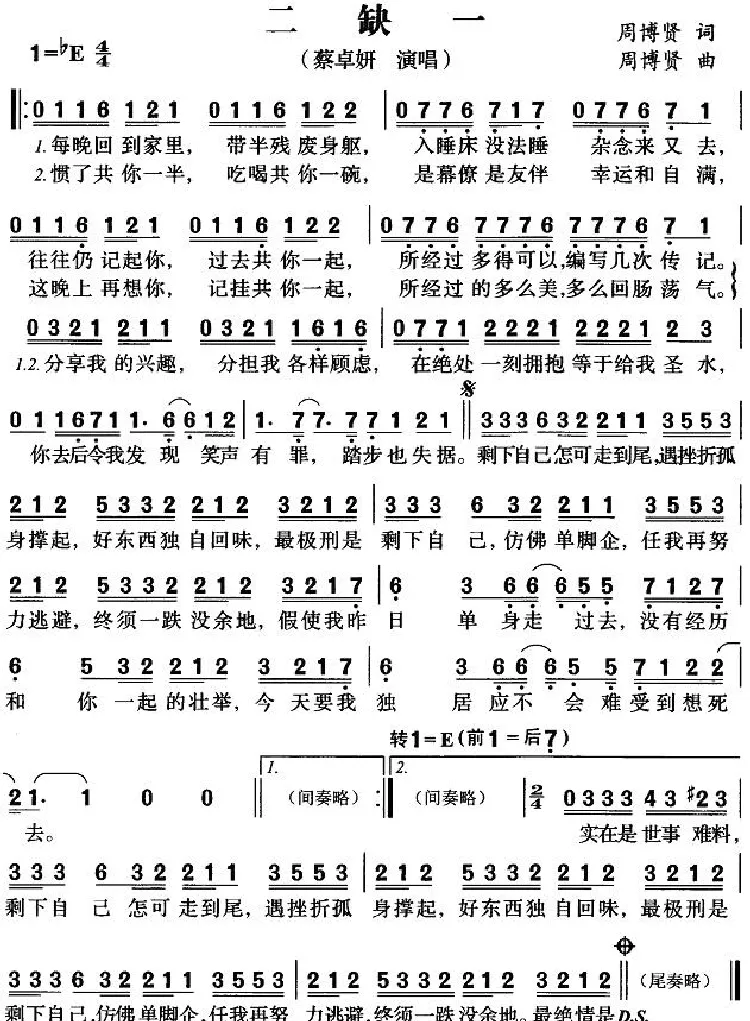 二 缺 一
1=♭E 4/4
（蔡卓妍 演唱）
周博贤 词
周博贤 曲
0 1 1 6 1 2 1 0 1 1 6 1 2 2 0 7 7 6 7 1 7 0 7 7 6 7 1
1. 每晚回 到家里， 带半残 废身躯， 入睡床 没法睡 杂念来 又去，
2. 惯了共 你一半， 吃喝共 你一碗， 是幕僚 是友伴 幸运和 自满，
0 1 1 6 1 2 1 0 1 1 6 1 2 2 0 7 7 6 7 7 7 6 7 7 7 6 7 1
往往仍 记起你， 过去共 你一起， 所经过 多得可以,编写几次 传记。
这晚上 再想你， 记挂共 你一起， 所经过 的多么美,多么回肠 荡气。
0 3 2 1 2 1 1 0 3 2 1 1 6 1 6 0 7 7 1 2 2 2 1 2 2 2 1 2 3
1.2. 分享我 的兴趣， 分担我 各样顾虑， 在绝处 一刻拥抱 等于给我 圣水，
0 1 1 6 7 1 1· 6 6 1 2 1· 7 7· 7 7 1 2 1 3 3 3 6 3 2 2 1 1 3 5 5 3
你去后令我发 现 笑声 有 罪， 踏步也 失据。剩下自己怎可走到尾,遇挫折孤
2 1 2 5 3 3 2 2 1 2 3 2 1 2 3 3 3 6 3 2 2 1 1 3 5 5 3
身撑起，好东西独 自回味，最极刑是 剩下自 己，仿佛 单脚企，任我再努
2 1 2 5 3 3 2 2 1 2 3 2 1 7 6 3 6 6 6 5 5 7 1 2 7
力逃避，终须一跌 没余地，假使我昨 日 单 身走 过去，没有经历
6 5 3 2 2 1 2 3 2 1 7 6 3 6 6 6 5 5 7 1 2 2
和 你 一起 的壮举，今 天要我 独 居 应不 会 难 受到想死
转1=E（前1=后7）
2 1· 1 0 0 1. （间奏略） 2. （间奏略） 2/4 0 3 3 3 4 3 #2 3
去。 实在是 世事 难料，
3 3 3 6 3 2 2 1 1 3 5 5 3 2 1 2 5 3 3 2 2 1 2 3 2 1 2
剩下自 己 怎可 走到尾，遇挫折孤 身撑起，好东西独 自回味，最极刑是
3 3 3 6 3 2 2 1 1 3 5 5 3 2 1 2 5 3 3 2 2 1 2 3 2 1 2 （尾奏略）
剩下自己,仿佛单脚企,任我再努 力逃避,终须一跌没余地。最绝情是 D.S.